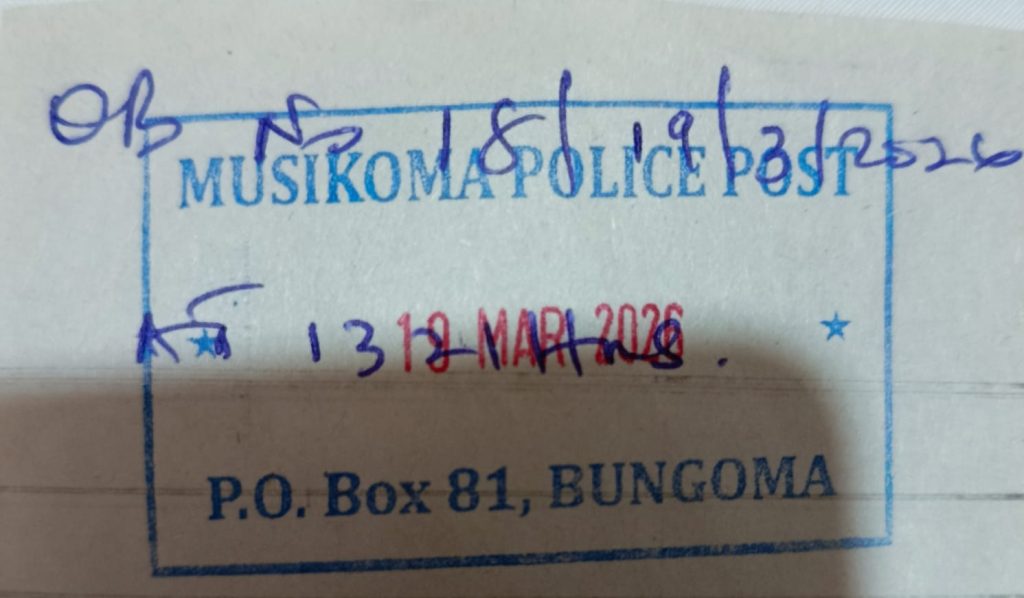 OB No 18/19/3/2026
MUSIKOMA POLICE POST
19 MAR 2026
At 1321Hrs.
P.O. Box 81, BUNGOMA